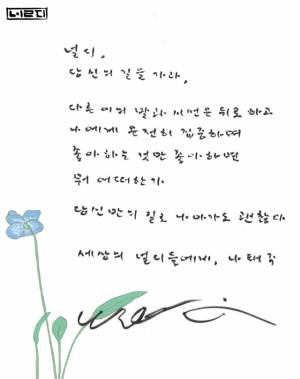 널디,
당신의 길을 가라,
다른 이의 말과 시선은 뒤로 하고
나에게 온전히 집중하며
좋아하는 것만 좋아하면
뭐 어떠한가
당신만의 길로 나아가도 괜찮다
세상의 널디들에게, 나태주